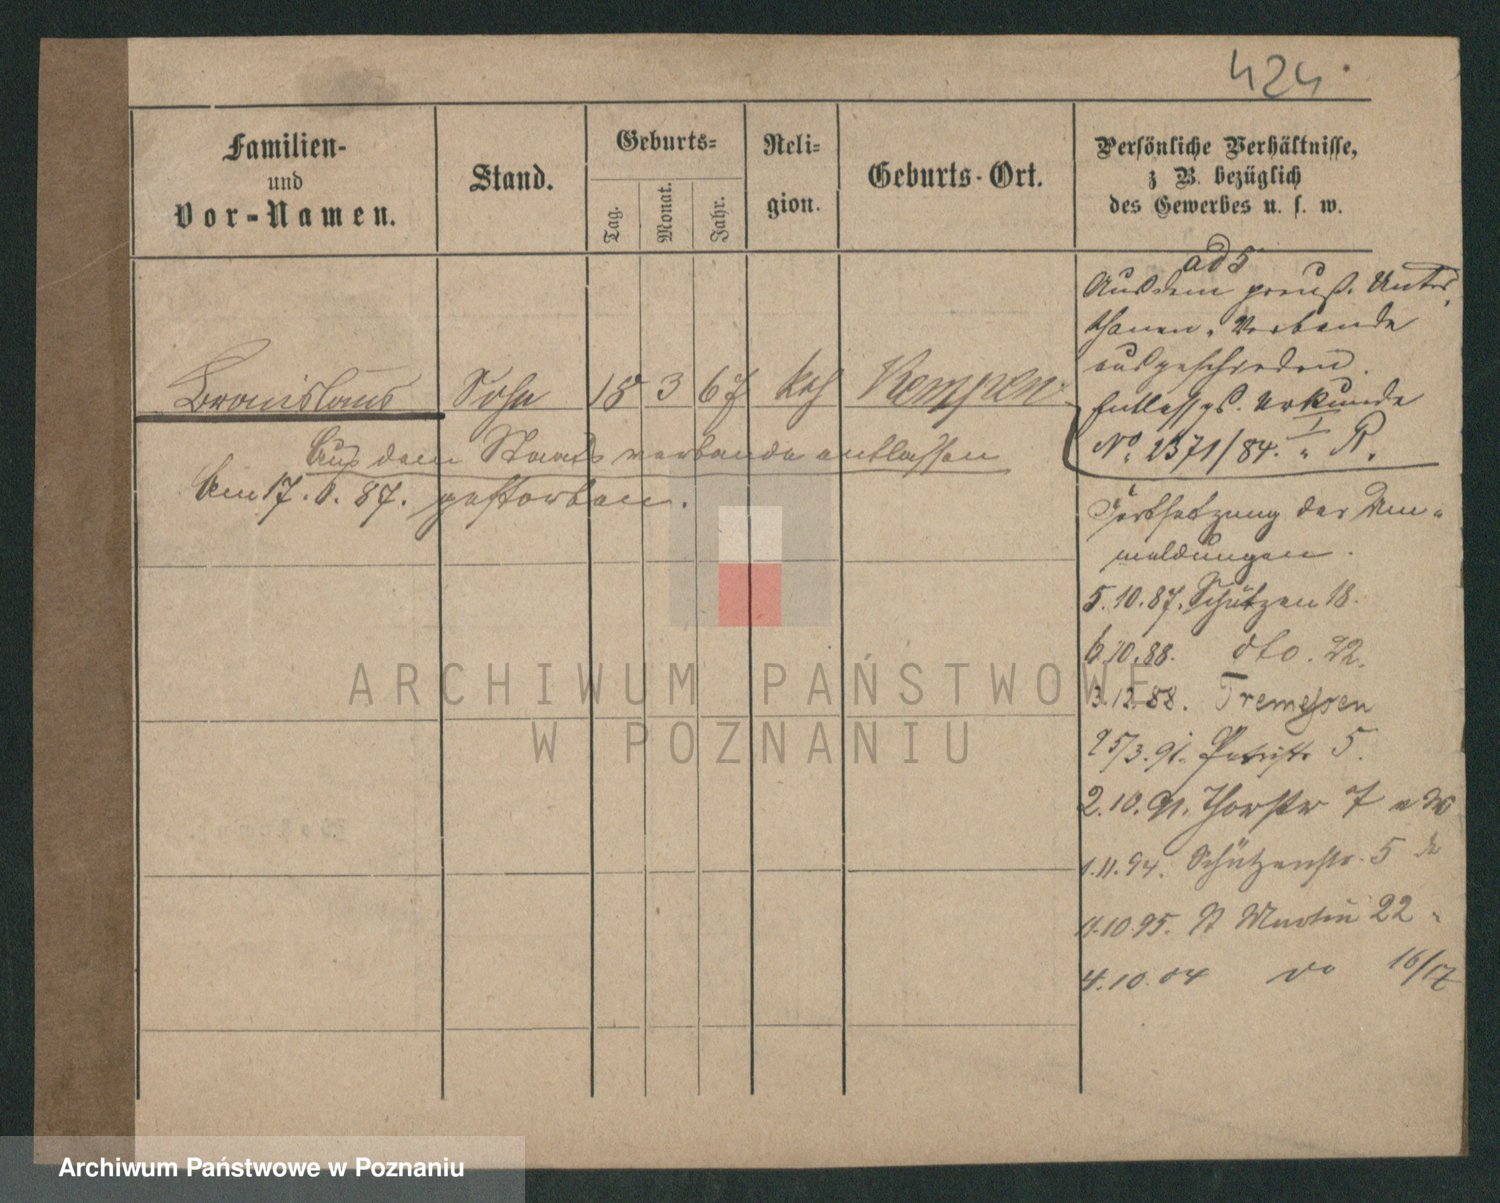 424
Familien-
und
Vor-Namen.
Stand.
Geburts-
Tag.
Monat.
Jahr.
Reli-
gion.
Geburts-Ort.
Persönliche Verhältnisse,
z B. bezüglich
des Gewerbes u. s. w.
ad 5
Aus dem preuß. Unter-
thanen-Verbande
ausgeschieden.
Entlassgs. Urkunde
No. 2371/84. I R.
Bronislaus Sohn 18 3 67 kth Kempen
Aus dem Staatsverbande entlassen
Am 17. 87. gestorben.
Fortsetzung der An-
meldungen.
5.10.87. Schützen 18.
10.88. dto. 22.
3.12.88. Tremessen
25/3.91. 5.
2.10.91. Thorstr 7
1.11.94. Schützenstr. 5
11.10.95. St Martin 22
4.10.04 do 16/17
ARCHIWUM PAŃSTWOWE
W POZNANIU
Archiwum Państwowe w Poznaniu